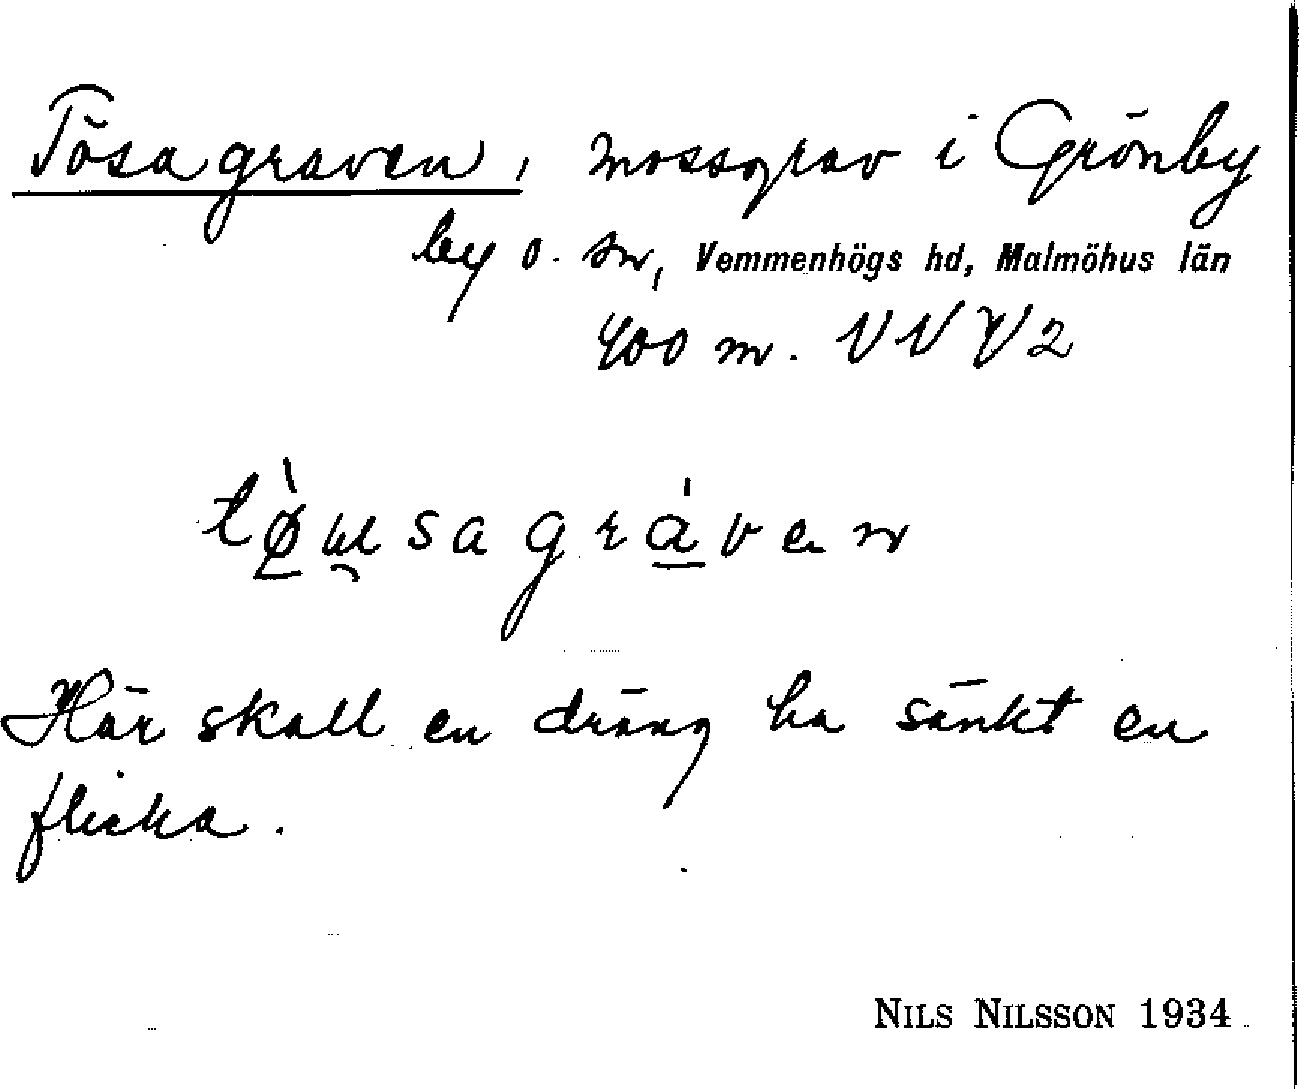 Tösagraven, mossgrav i Grönby
by o. sn, Vemmenhögs hd, Malmöhus län
400 m. VNV 2
tø̀u̯sagráven
Här skall en dräng ha sänkt en
flicka.
NILS NILSSON 1934